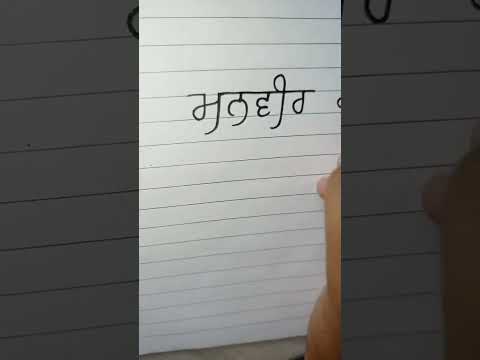 ਮਨਵੀਰ